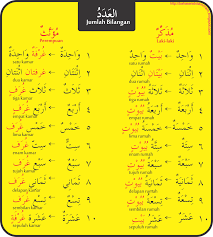 العَدَدُ
Jumlah Bilangan
مُذَكَّرٌ مُؤَنَّثٌ
Laki-laki Perempuan
١ وَاحِدٌ ← بَيْتٌ وَاحِدٌ وَاحِدَةٌ ← غُرْفَةٌ وَاحِدَةٌ
satu rumah satu kamar
٢ اثْنَانِ ← بَيْتَانِ اثْنَانِ اثْنَتَانِ ← غُرْفَتَانِ اثْنَتَانِ
dua rumah dua kamar
٣ ثَلَاثَةٌ ← ثَلَاثَةُ بُيُوتٍ ثَلَاثٌ ← ثَلَاثُ غُرَفٍ
tiga rumah tiga kamar
٤ أَرْبَعَةٌ ← أَرْبَعَةُ بُيُوتٍ أَرْبَعٌ ← أَرْبَعُ غُرَفٍ
empat rumah empat kamar
٥ خَمْسَةٌ ← خَمْسَةُ بُيُوتٍ خَمْسٌ ← خَمْسُ غُرَفٍ
lima rumah lima kamar
٦ سِتَّةٌ ← سِتَّةُ بُيُوتٍ سِتٌّ ← سِتُّ غُرَفٍ
enam rumah enam kamar
٧ سَبْعَةٌ ← سَبْعَةُ بُيُوتٍ سَبْعٌ ← سَبْعُ غُرَفٍ
tujuh rumah tujuh kamar
٨ ثَمَانِيَةٌ ← ثَمَانِيَةُ بُيُوتٍ ثَمَانٍ ← ثَمَانِي غُرَفٍ
delapan rumah delapan kamar
٩ تِسْعَةٌ ← تِسْعَةُ بُيُوتٍ تِسْعٌ ← تِسْعُ غُرَفٍ
sembilan rumah sembilan kamar
١٠ عَشَرَةٌ ← عَشَرَةُ بُيُوتٍ عَشْرٌ ← عَشْرُ غُرَفٍ
sepuluh rumah sepuluh kamar